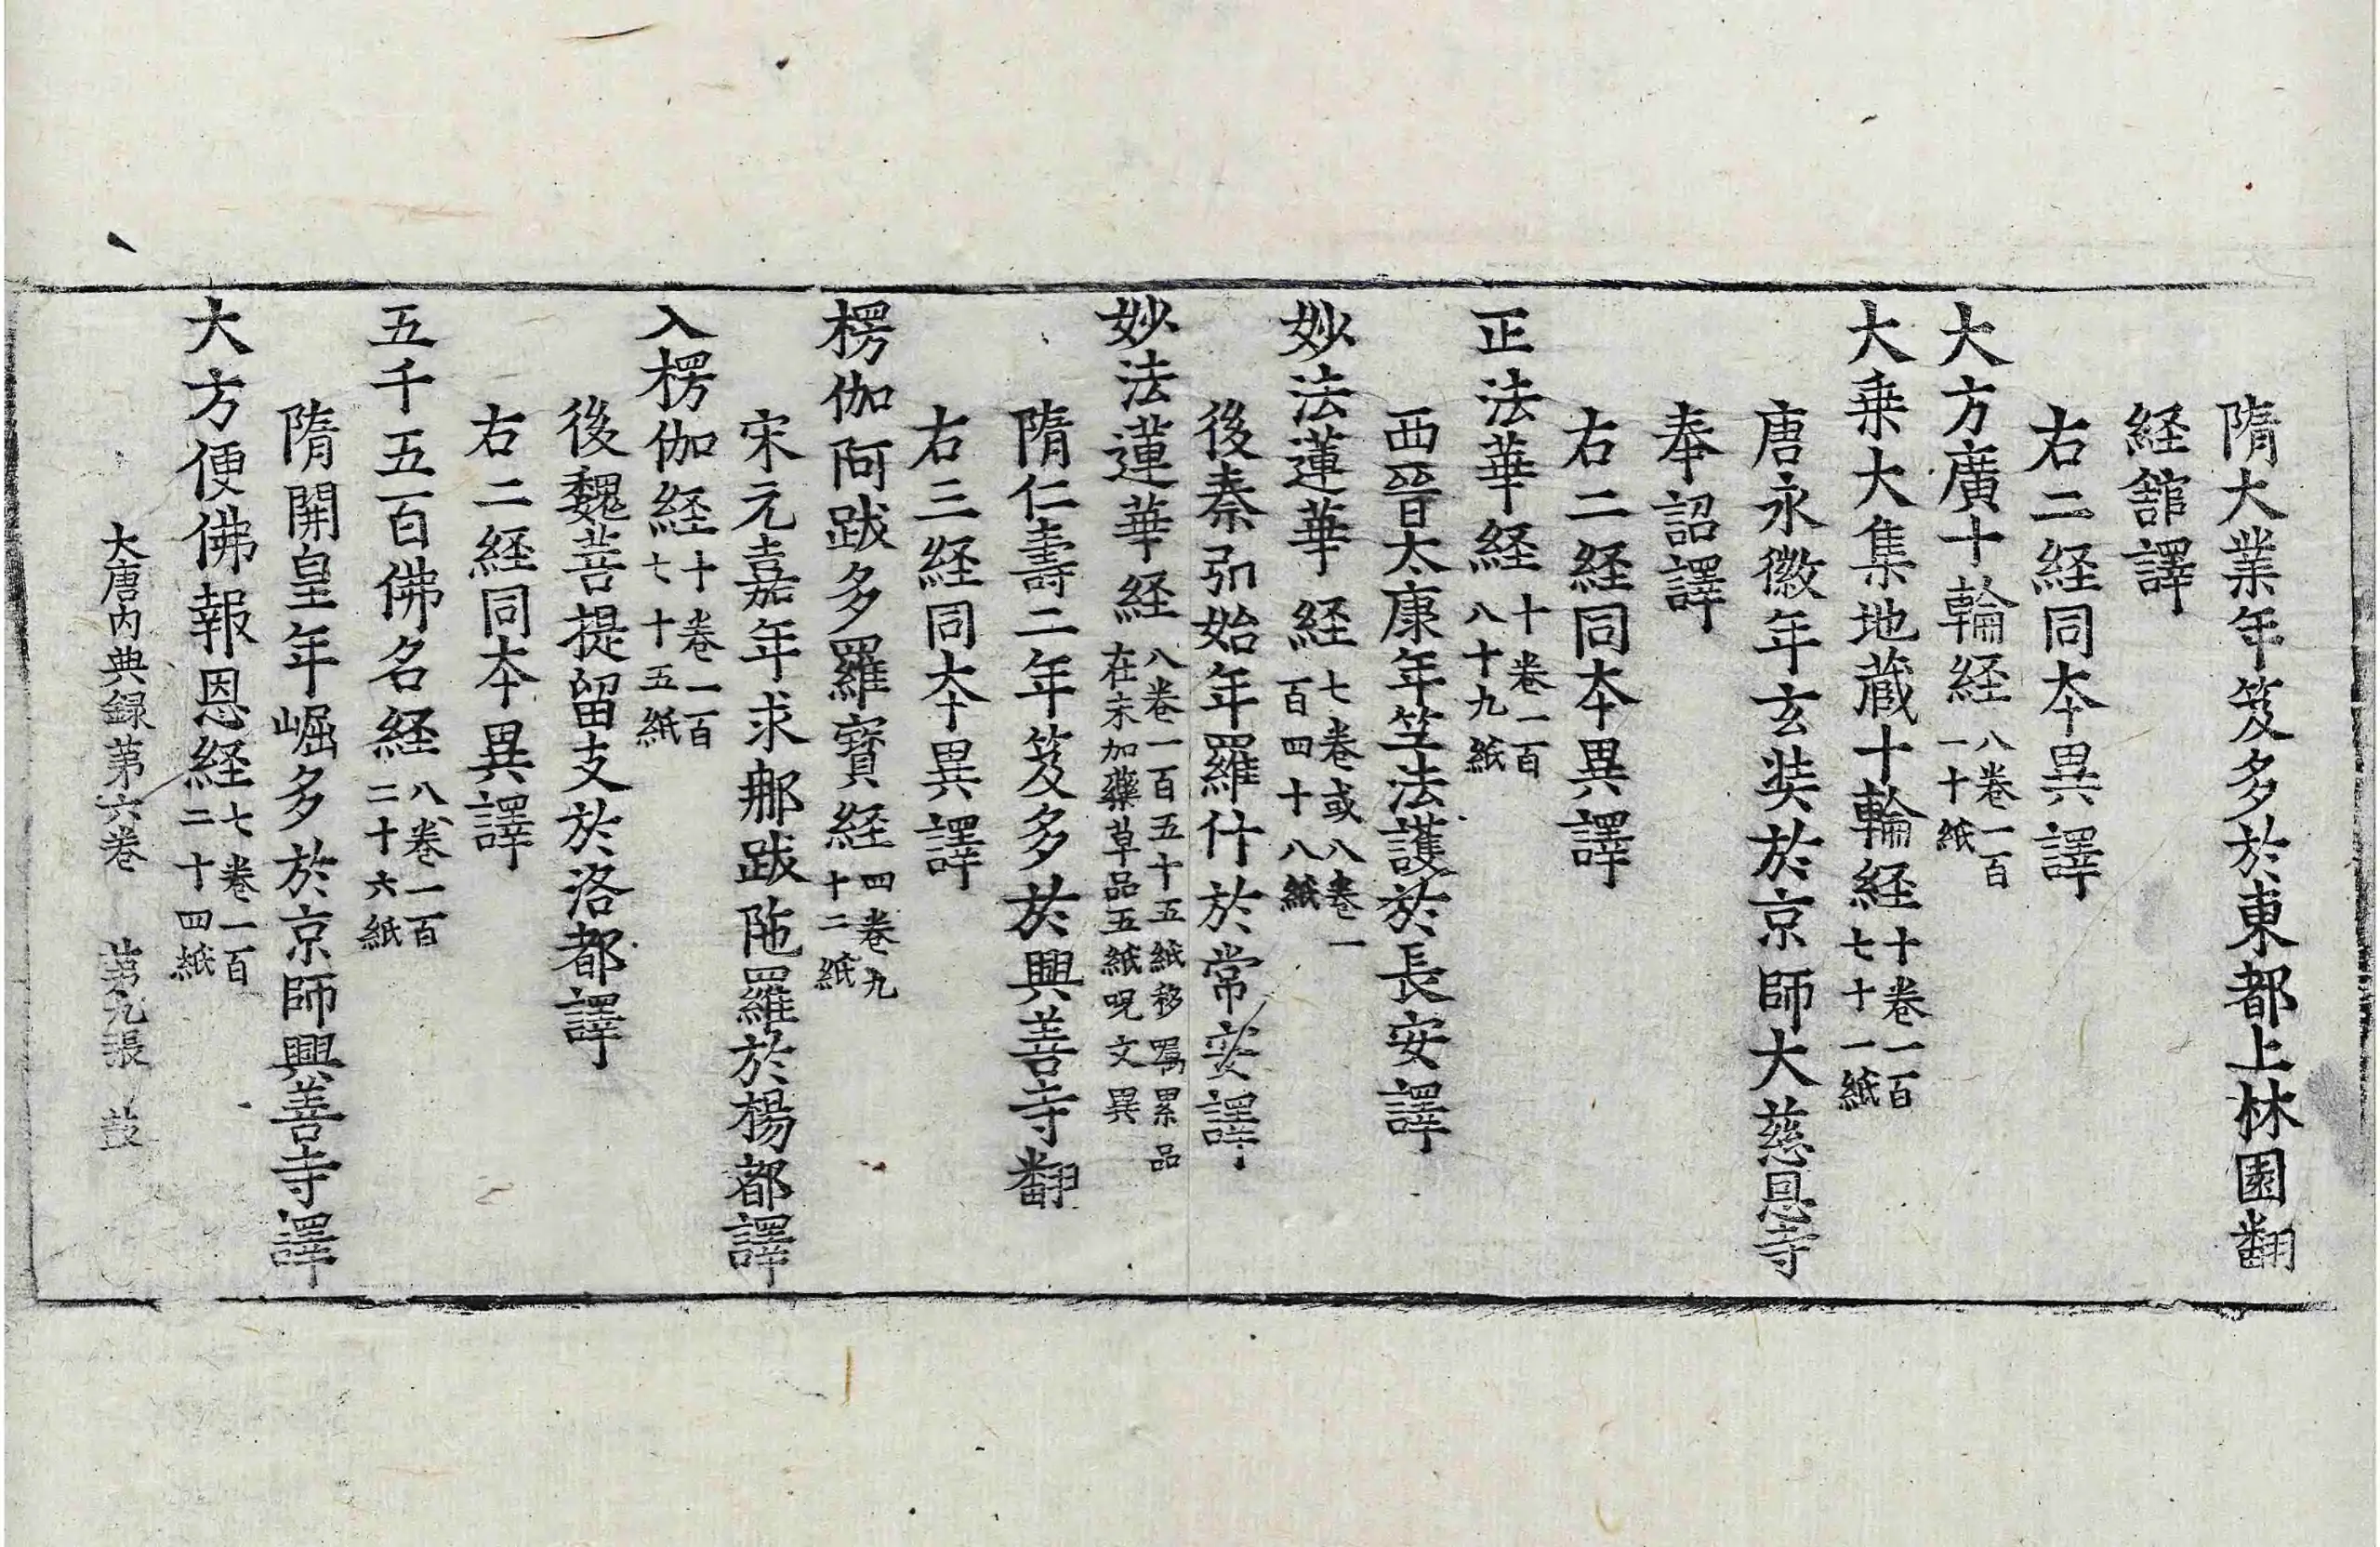 隋大業年笈多於東都上林園翻
経舘譯
右二経同本異譯
大方廣十輪経八卷一百一十紙
大乗大集地蔵十輪経十卷一百七十一紙
唐永徽年玄奘於京師大慈恩寺
奉詔譯
右二経同本異譯
正法華経十卷一百八十九紙
西晉太康年竺法護於長安譯
妙法蓮華経七卷或八卷一百四十八紙
後秦弘始年羅什於常安譯
妙法蓮華経八卷一百五十五紙移寫累品在末加藥草品五紙呪文異
隋仁壽二年笈多於興善寺翻
右三経同本異譯
楞伽阿跋多羅寶経四卷九十二紙
宋元嘉年求那跋陁羅於楊都譯
入楞伽経十卷一百七十五紙
後魏菩提留支於洛都譯
右二経同本異譯
五千五百佛名経八卷一百二十六紙
隋開皇年崛多於京師興善寺譯
大方便佛報恩経七卷一百二十四紙
大唐内典録第六卷 第九張 鼓